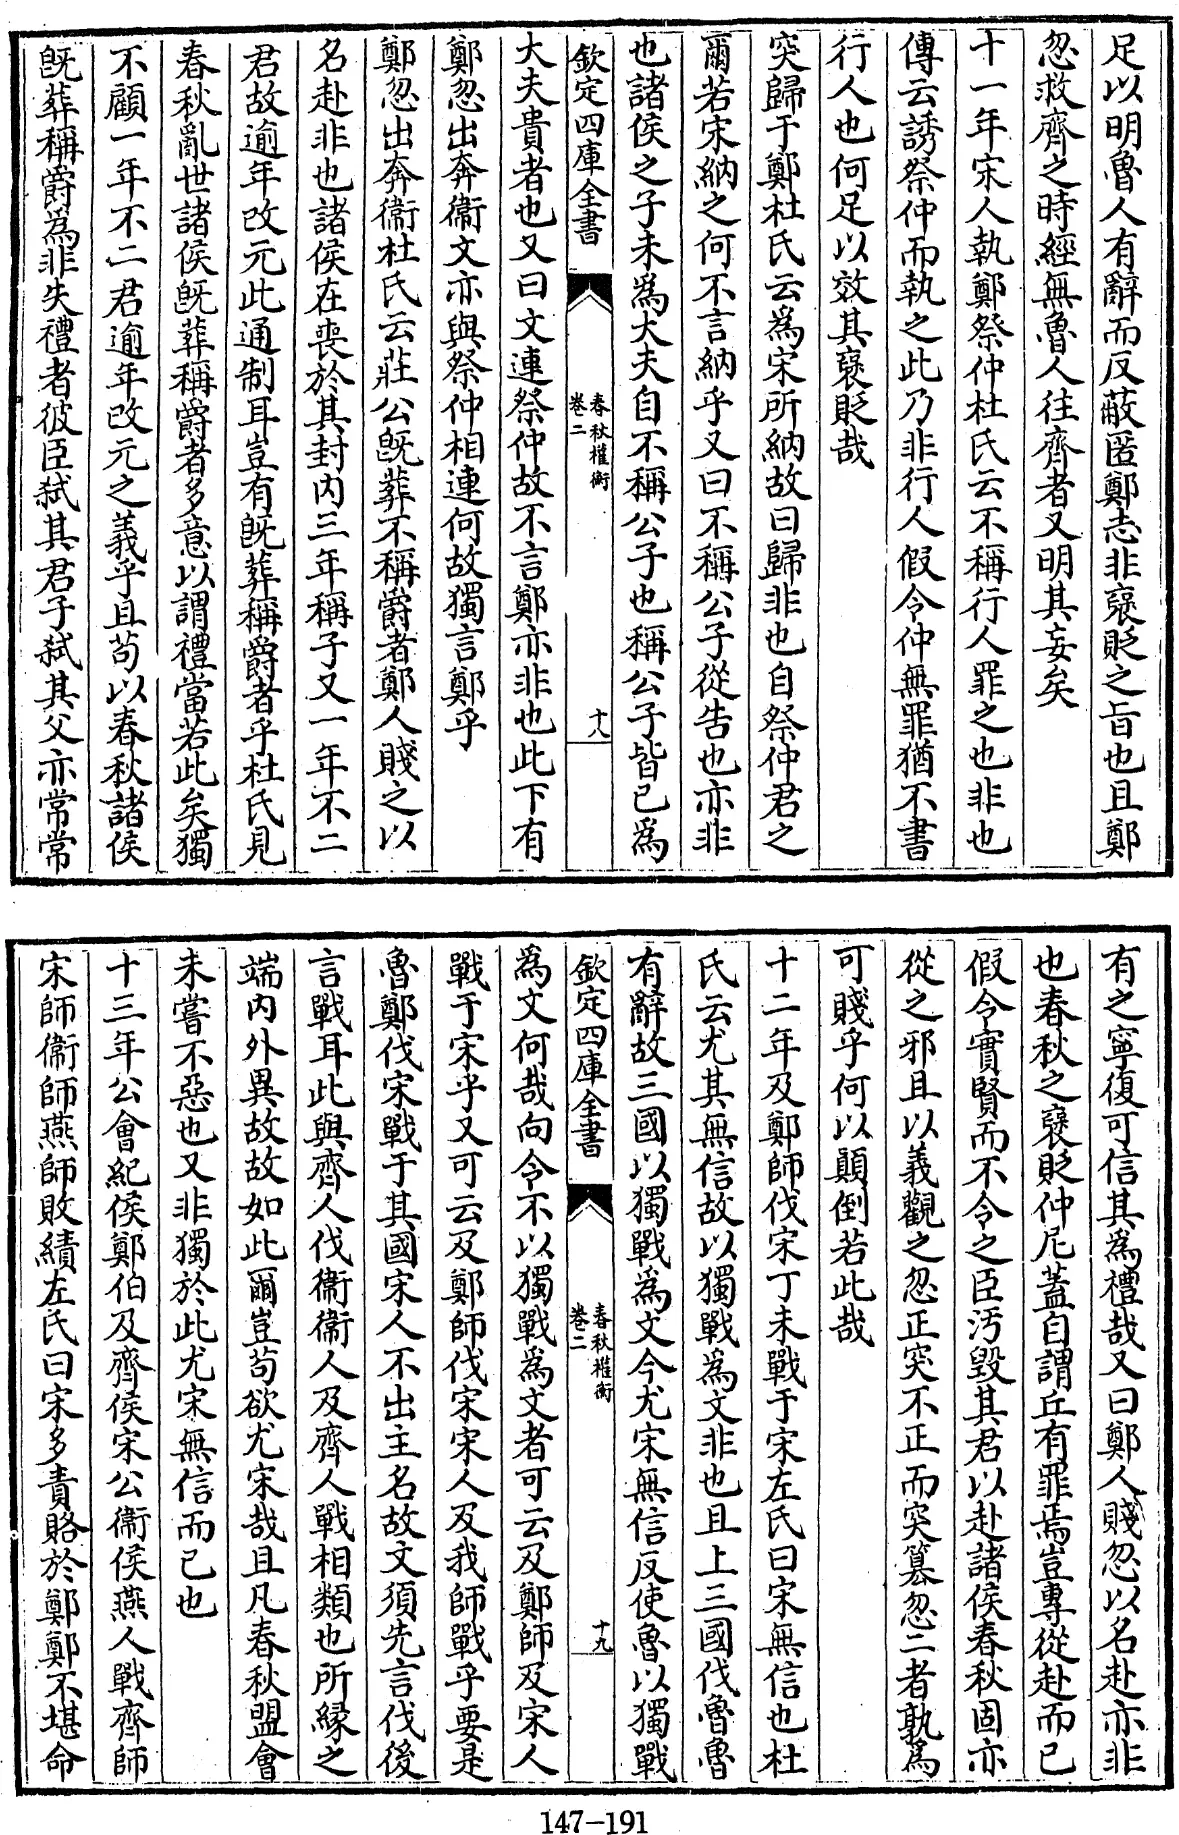 足以明魯人有辭而反蔽匿鄭志非襃貶之旨也且鄭
忽救齊之時經無魯人往齊者又明其妄矣
十一年宋人執鄭祭仲杜氏云不稱行人罪之也非也
傳云誘祭仲而執之此乃非行人假令仲無罪猶不書
行人也何足以效其襃貶哉
突歸于鄭杜氏云為宋所納故曰歸非也自祭仲君之
爾若宋納之何不言納乎又曰不稱公子從告也亦非
也諸侯之子未為大夫自不稱公子也稱公子皆已為
欽定四庫全書
春秋權衡
卷二
十八
大夫貴者也又曰文連祭仲故不言鄭亦非也此下有
鄭忽出奔衞文亦與祭仲相連何故獨言鄭乎
鄭忽出奔衞杜氏云莊公旣葬不稱爵者鄭人賤之以
名赴非也諸侯在喪於其封内三年稱子又一年不二
君故逾年改元此通制耳豈有旣葬稱爵者乎杜氏見
春秋亂世諸侯旣葬稱爵者多意以謂禮當若此矣獨
不顧一年不二君逾年改元之義乎且苟以春秋諸侯
旣葬稱爵為非失禮者彼臣弑其君子弑其父亦常常
有之寧復可信其為禮哉又曰鄭人賤忽以名赴亦非
也春秋之襃貶仲尼蓋自謂丘有罪焉豈專從赴而已
假令實賢而不令之臣汚毀其君以赴諸侯春秋固亦
從之邪且以義觀之忽正突不正而突簒忽二者孰為
可賤乎何以顛倒若此哉
十二年及鄭師伐宋丁未戰于宋左氏曰宋無信也杜
氏云尤其無信故以獨戰為文非也且上三國伐魯魯
有辭故三國以獨戰為文今尤宋無信反使魯以獨戰
欽定四庫全書
春秋權衡
卷二
十九
為文何哉向令不以獨戰為文者可云及鄭師及宋人
戰于宋乎又可云及鄭師伐宋宋人及我師戰乎要是
魯鄭伐宋戰于其國宋人不出主名故文須先言伐後
言戰耳此與齊人伐衞衞人及齊人戰相類也所縁之
端内外異故故如此爾豈苟欲尤宋哉且凡春秋盟會
未嘗不惡也又非獨於此尤宋無信而已也
十三年公會紀侯鄭伯及齊侯宋公衞侯燕人戰齊師
宋師衞師燕師敗績左氏曰宋多責賂於鄭鄭不堪命
147-191